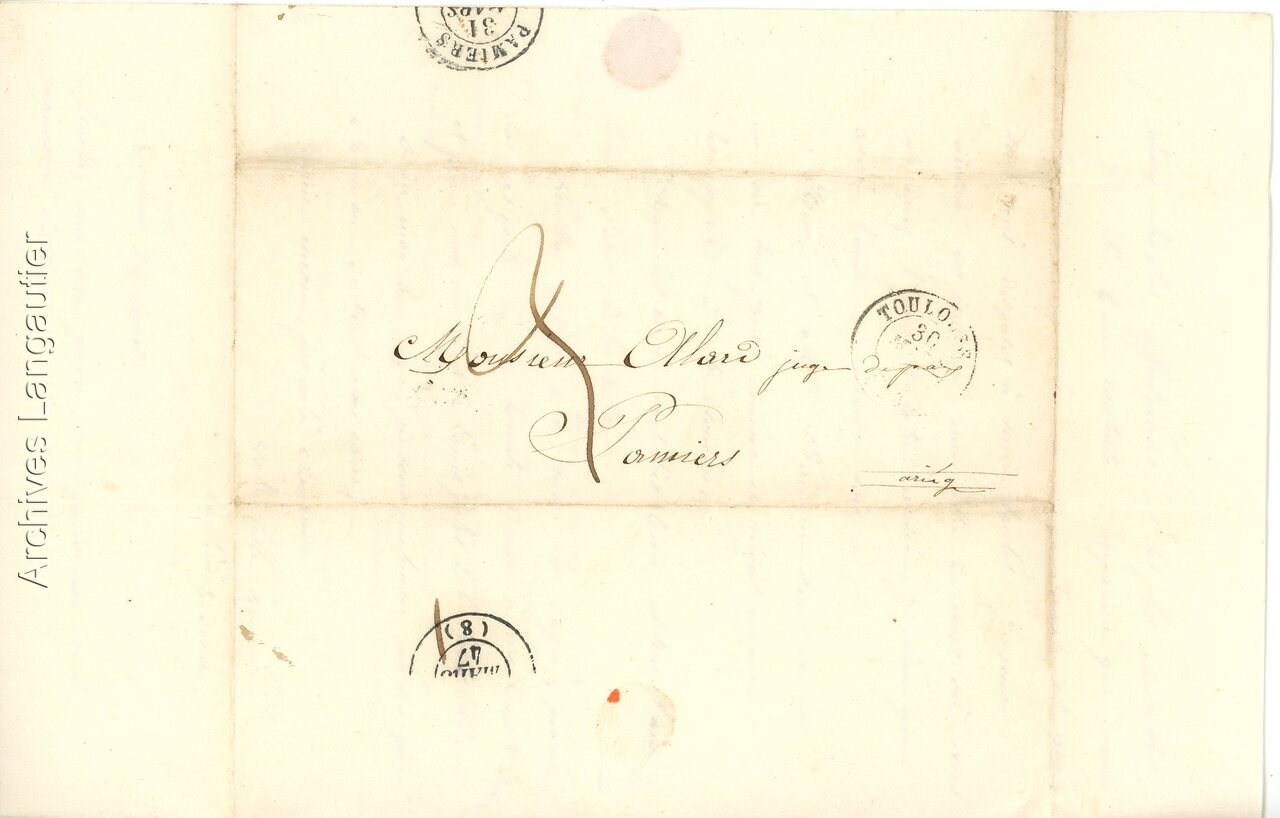 PAMIERS
31
MARS
TOULO
30
Monsieur Allard juge de paix
Pamiers
ariég
(8)
47
MARS
Archives Langautier